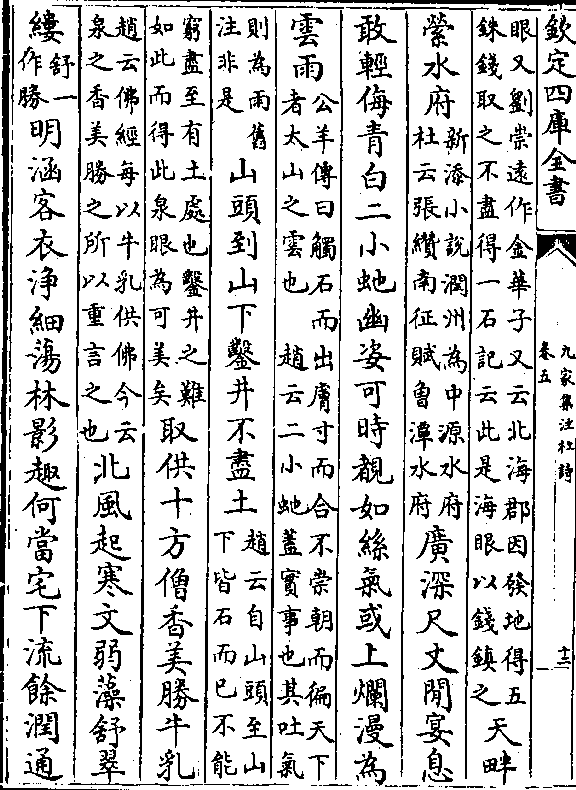 欽定四庫全書
九家集注杜詩
卷五
十三
眼又劉崇遠作金華子又云北海郡因發地得五
銖錢取之不盡得一石記云此是海眼以錢鎮之
天畔
縈水府
新添小說潤州為中源水府
杜云張纘南征賦魯潭水府
廣深尺丈閒宴息
敢輕侮青白二小虵幽姿可時覩如絲氣或上爛漫為
雲雨
公羊傳曰觸石而出膚寸而合不崇朝而徧天下
者太山之雲也 趙云二小虵蓋實事也其吐氣
則為雨舊
注非是
山頭到山下鑿井不盡土
趙云自山頭至山
下皆石而已不能
窮盡至有土處也鑿井之難
如此而得此泉眼為可美矣
取供十方僧香美勝牛乳
趙云佛經每以牛乳供佛今云
泉之香美勝之所以重言之也
北風起寒文弱藻舒翠
縷
舒一
作勝
明涵客衣淨細蕩林影趣何當宅下流餘潤通